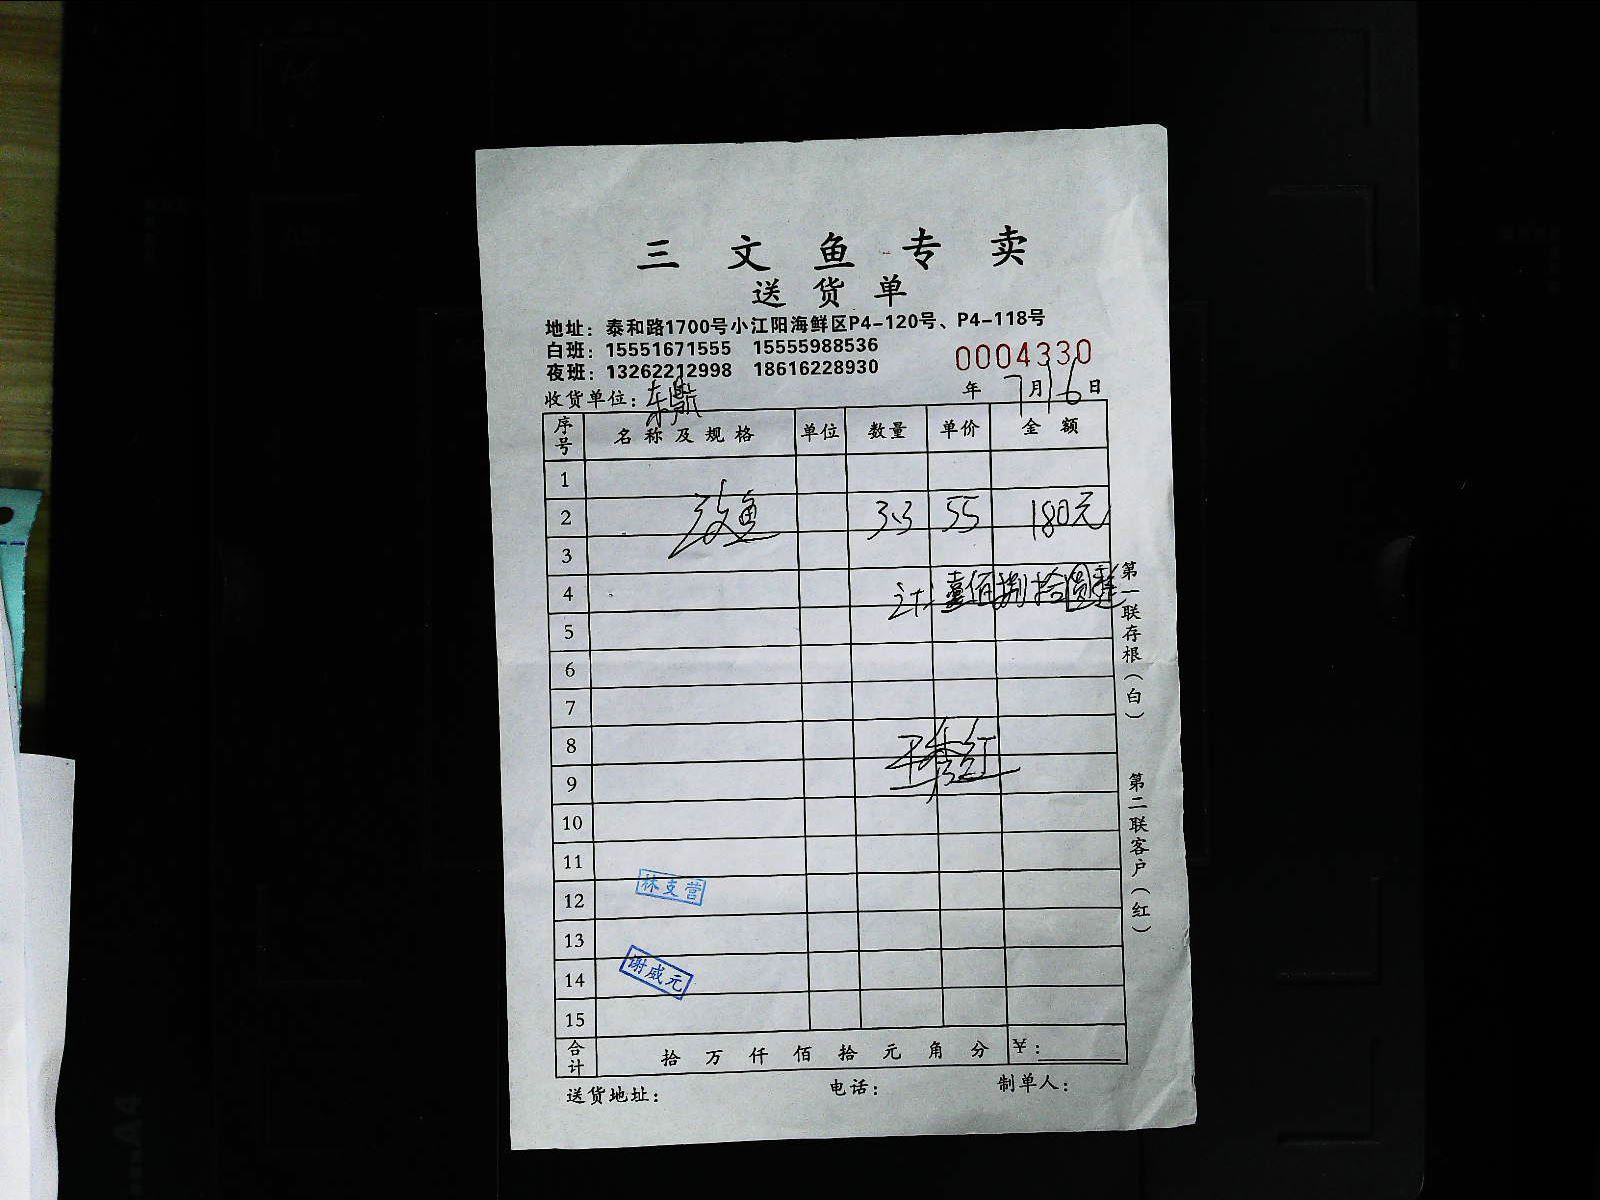 三文鱼专卖
送货单
地址：泰和路1700号小江阳海鲜区P4-120号、P4-118号
白班：15551671555 15555988536
夜班：13262212998 18616228930
0004330
收货单位： 年7月16日
序号 名称及规格 单位 数量 单价 金额
1
2 三文鱼 3.3 55 180元
3
4 计：壹佰捌拾圆整
5
6
7
8
9
10
11
12 林支营
13
14 谢威元
15
合计 拾万仟佰拾元角分 ¥：
送货地址： 电话： 制单人：
第一联存根（白） 第二联客户（红）